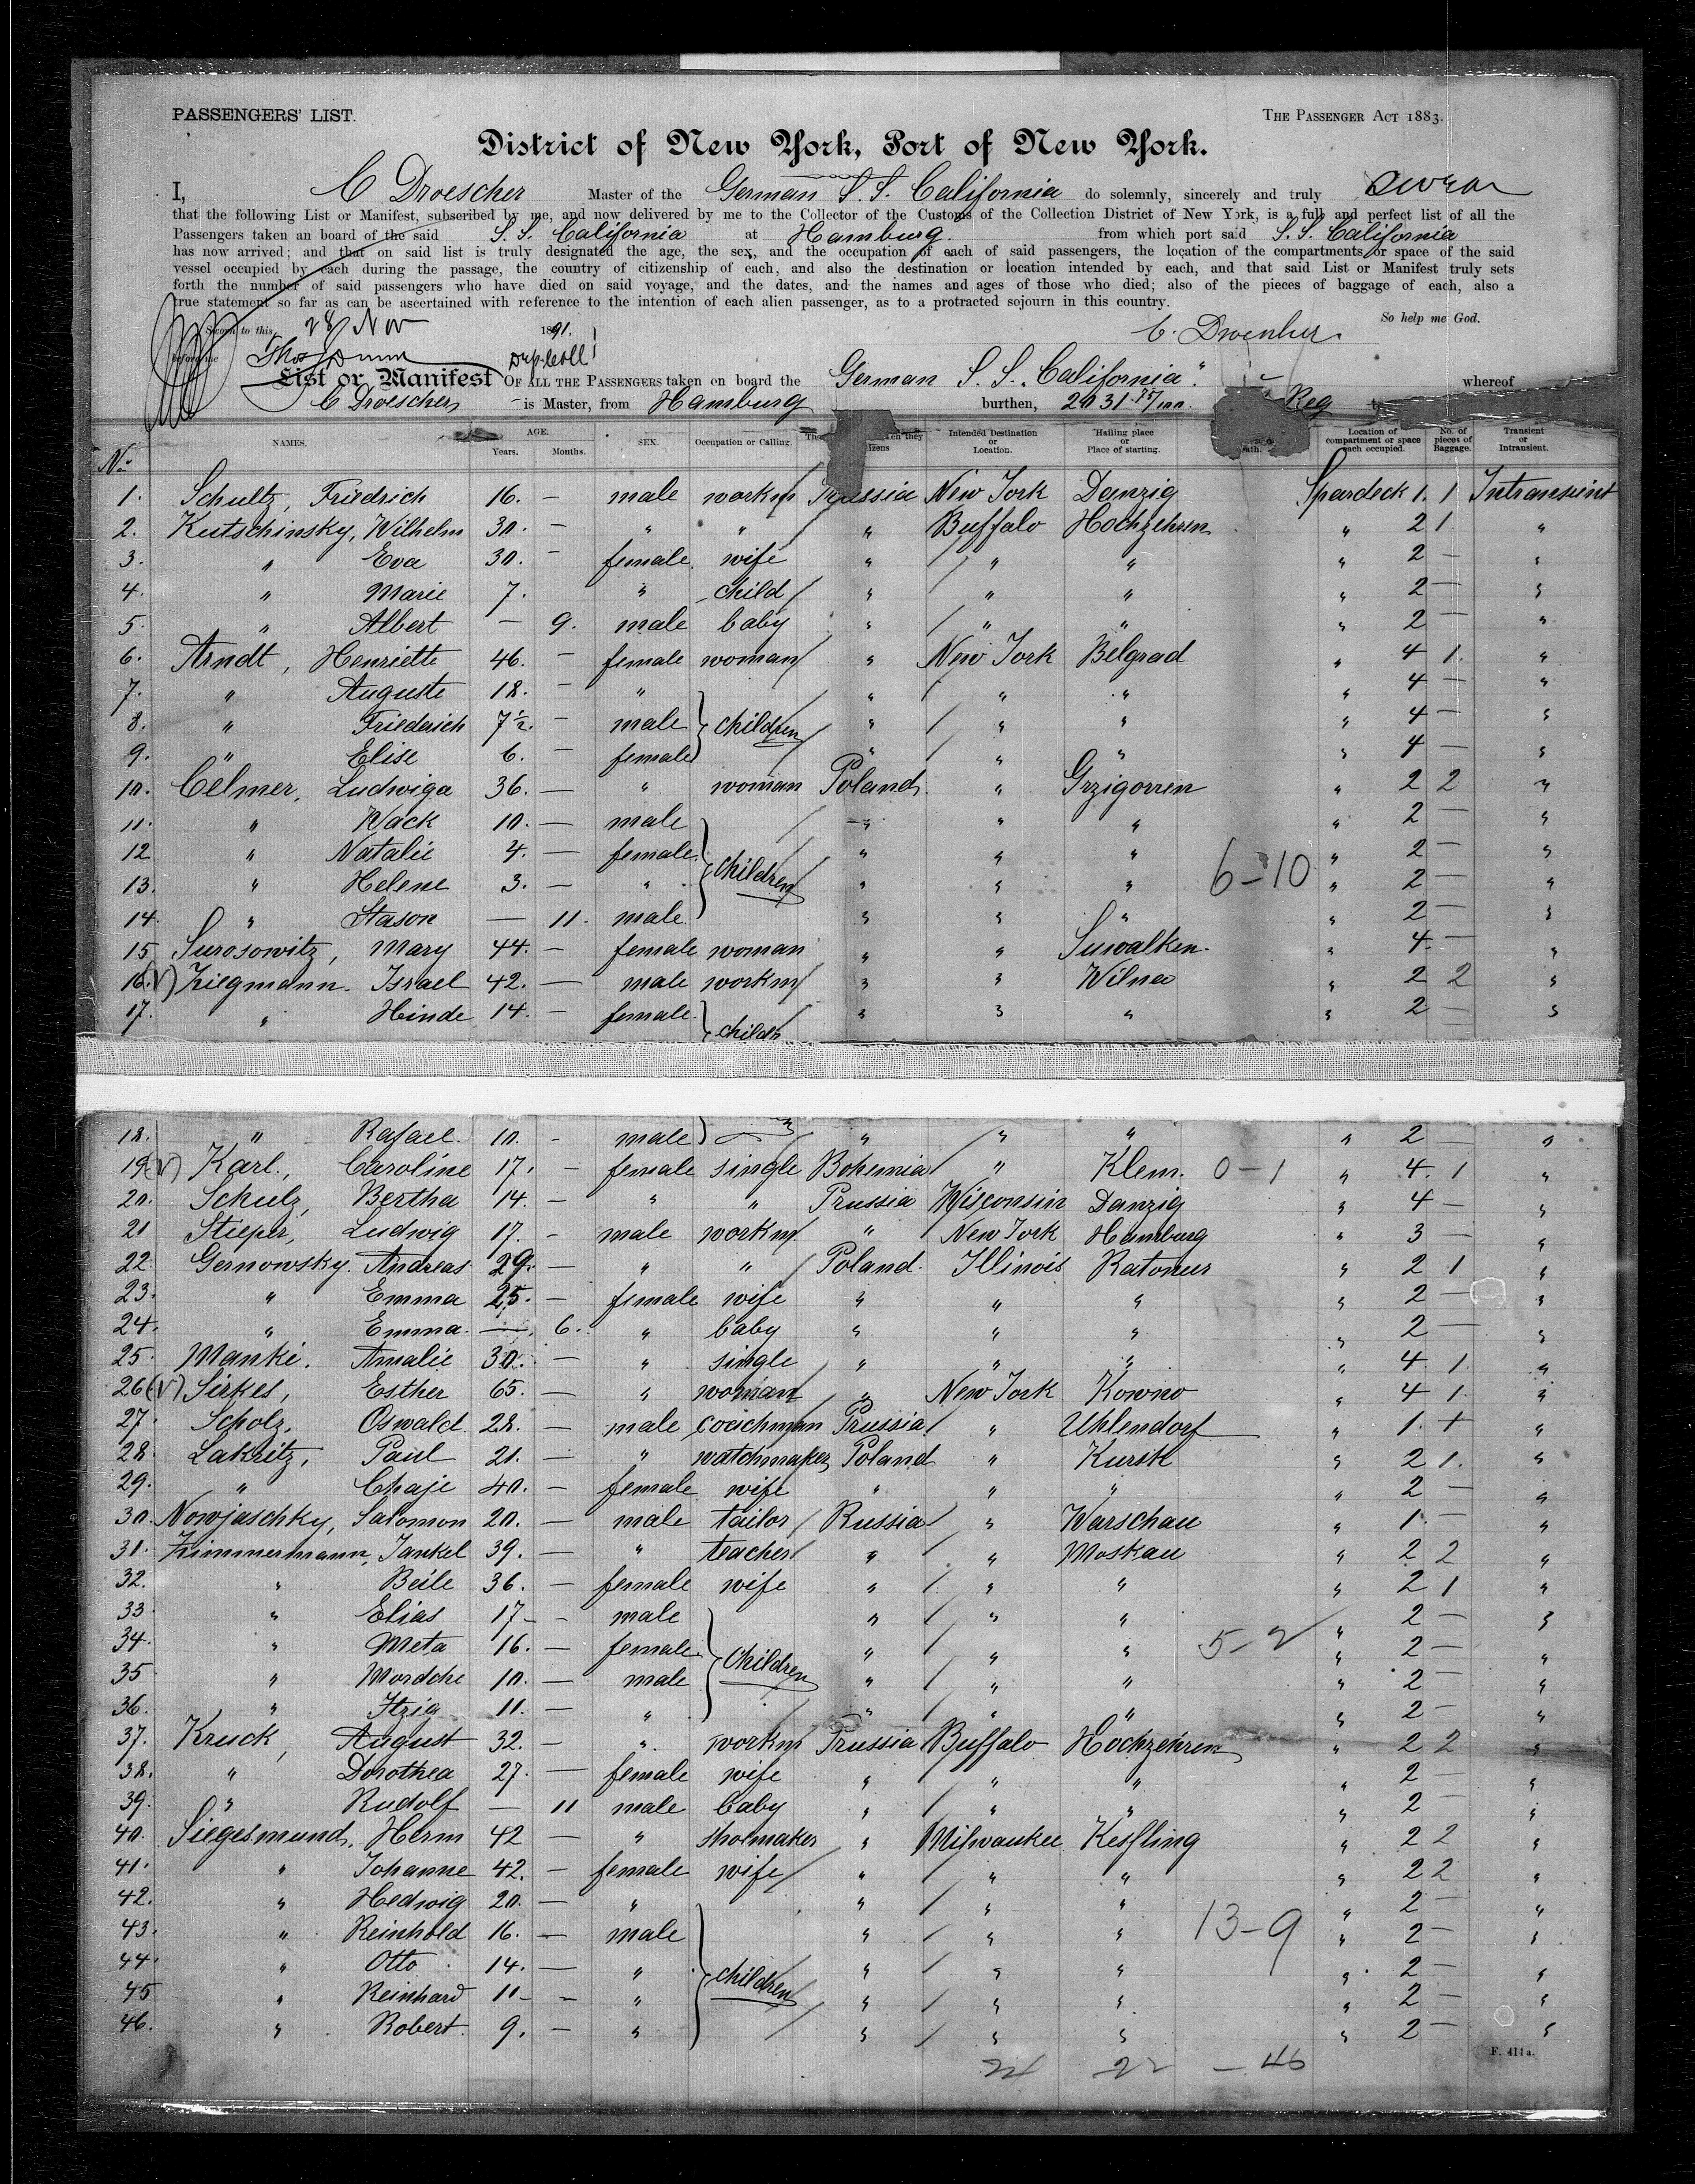 PASSENGERS' LIST. THE PASSENGER ACT 1883.
District of New York, Port of New York.
I, C Droescher Master of the German S. S. California do solemnly, sincerely and truly swear
that the following List or Manifest, subscribed by me, and now delivered by me to the Collector of the Customs of the Collection District of New York, is a full and perfect list of all the
Passengers taken an board of the said S. S. California at Hamburg. from which port said S. S. California
has now arrived; and that on said list is truly designated the age, the sex, and the occupation of each of said passengers, the location of the compartments or space of the said
vessel occupied by each during the passage, the country of citizenship of each, and also the destination or location intended by each, and that said List or Manifest truly sets
forth the number of said passengers who have died on said voyage, and the dates, and the names and ages of those who died; also of the pieces of baggage of each, also a
true statement so far as can be ascertained with reference to the intention of each alien passenger, as to a protracted sojourn in this country.
So help me God.
Sworn to this 28 Nov 1891.
before me Thos Dunn Dep. Coll
List or Manifest OF ALL THE PASSENGERS taken on board the German S. S. "California". whereof
C Droescher is Master, from Hamburg burthen, 2031 75/100 Reg
No NAMES. AGE. Years. Months. SEX. Occupation or Calling. Intended Destination or Location. Hailing place or Place of starting. Location of compartment or space each occupied. No. of pieces of Baggage. Transient or Intransient.
1. Schultz, Friedrich 16. — male workm Prussia New York Danzig Spardeck 1. 1 Intransient
2. Kutschinsky, Wilhelm 30. — " " " Buffalo Hochzehren " 2 1. "
3. " Eva 30. — female. wife " " " " 2 — "
4. " Marie 7. " child " " " " 2 — "
5. " Albert — 9. male baby " " " " 2 — "
6. Arndt, Henriette 46. — female woman " New York Belgrad " 4 1. "
7. " Auguste 18. — " " " " " 4 — "
8. " Friederich 7½. — male children " " " " 4 — "
9. " Elise 6. — female " " " " 4 — "
10. Celmer, Ludwiga 36. — " woman Poland. " Grzigorren " 2 2 "
11. " Wack 10. — male " " " " 2 — "
12 " Natalie 4. — female. children " " " " 2 — "
13. " Helene 3. — " " " " 6-10 " 2 — "
14. " Stason — 11. male. " " " " 2 — "
15 Surosowitz, Mary 44. — female woman " " Suwalken. " 4. — "
16. (V) Ziegmann. Israel 42. — male workm " " Wilna " 2 2 "
17. " Hinde 14. — female. childr " " " " 2 — "
18. " Rafael. 10. - male " " " " 2 — "
19 (V) Karl, Caroline 17. — female single Bohemia " Klem. 0-1 " 4. 1 "
20. Schulz, Bertha 14. — " " Prussia Wisconsin Danzig " 4 — "
21 Stieper, Ludwig 17. - male workm " New York Hamburg " 3 — "
22. Gernowsky. Andreas 29. — " " Poland. Illinois Ratonur " 2 1 "
23. " Emma 25. — female wife " " " " 2 — "
24. " Emma. — 6. " baby " " " " 2 — "
25. Manke. Amalie 30. — " single " " " " 4 1. "
26 (V) Sirkes, Esther 65. — " woman " New York Kowno " 4 1. "
27. Scholz, Oswald. 28. — male coachman Prussia " Uhlendorf " 1. + "
28. Lakritz, Paul 21. — " watchmaker Poland " Kursk " 2 1. "
29. " Chaje 40. — female wife " " " " 2 — "
30. Nowjaschky, Salomon 20. — male tailor Russia " Warschau " 1. — "
31. Zimmermann, Jankel 39. — " teacher " " Moskau " 2 2 "
32. " Beile 36. — female wife " " " " 2 1 "
33. " Elias 17 - male " " " " 2 — "
34. " Meta 16. — female. Children " " " 5-2 " 2 — "
35 " Mordche 10. — male " " " " 2 — "
36. " Itzig 11. — " " " " " 2 - "
37. Kruck, August 32. — " workm Prussia Buffalo Hochzehren " 2 2 "
38. " Dorothea 27. — female wife " " " " 2 — "
39. " Rudolf — 11 male baby " " " " 2 — "
40. Siegesmund, Herm 42 — " shoemaker " Milwaukee Kessling " 2 2 "
41. " Johanne 42. — female wife " " " " 2 2 "
42. " Hedwig 20. — " " " " " 2 — "
43. " Reinhold 16. — male " " " 13-9 " 2 — "
44. " Otto 14. — " children " " " " 2 — "
45 " Reinhard 11 - " " " " " 2 — "
46. " Robert. 9. — " " " " " 2 — "
24 22 — 46
F. 414a.